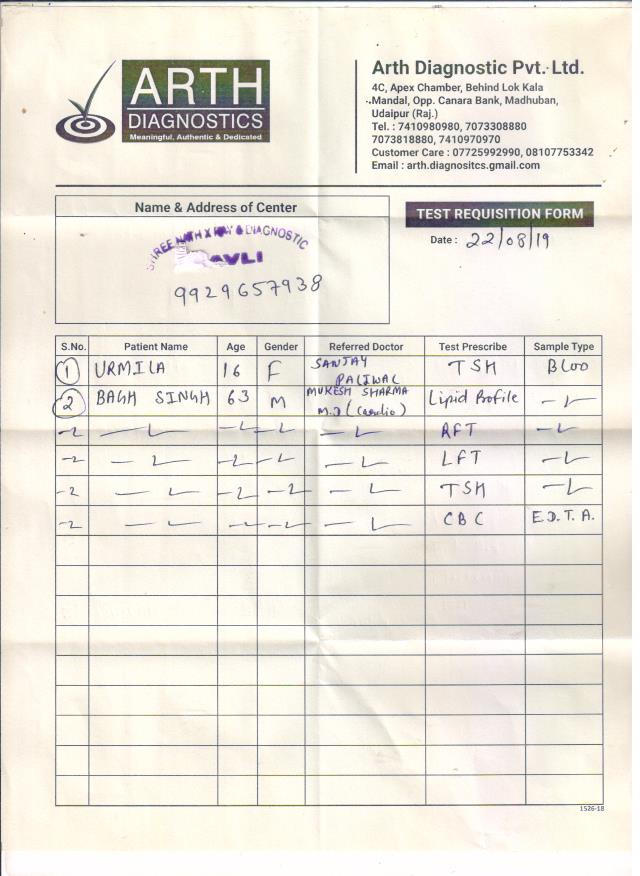 ARTH
DIAGNOSTICS
Meaningful, Authentic & Dedicated
Arth Diagnostic Pvt. Ltd.
4C, Apex Chamber, Behind Lok Kala
Mandal, Opp. Canara Bank, Madhuban,
Udaipur (Raj.)
Tel. : 7410980980, 7073308880
7073818880, 7410970970
Customer Care : 07725992990, 08107753342
Email : arth.diagnositcs.gmail.com
Name & Address of Center
SHREE NATH X RAY & DIAGNOSTIC
9929657938
TEST REQUISITION FORM
Date : 22/08/19
S.No. Patient Name Age Gender Referred Doctor Test Prescribe Sample Type
1 URMILA 16 F SANJAY PALIWAL TSH BLOO
2 BAGH SINGH 63 M MUKESH SHARMA M.D (Cardio) Lipid Profile
RFT
LFT
TSH
CBC E.D.T.A.
1526-18